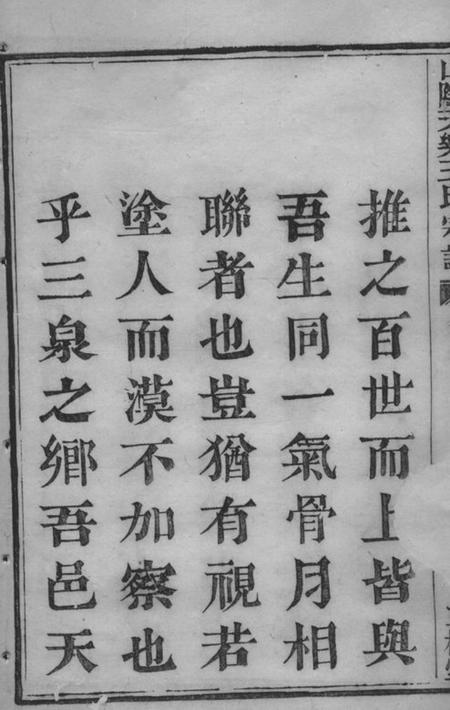 推之百世而上皆與
吾生同一氣骨月相
聯者也豈猶有視若
塗人而漠不加察也
乎三泉之鄉吾邑天